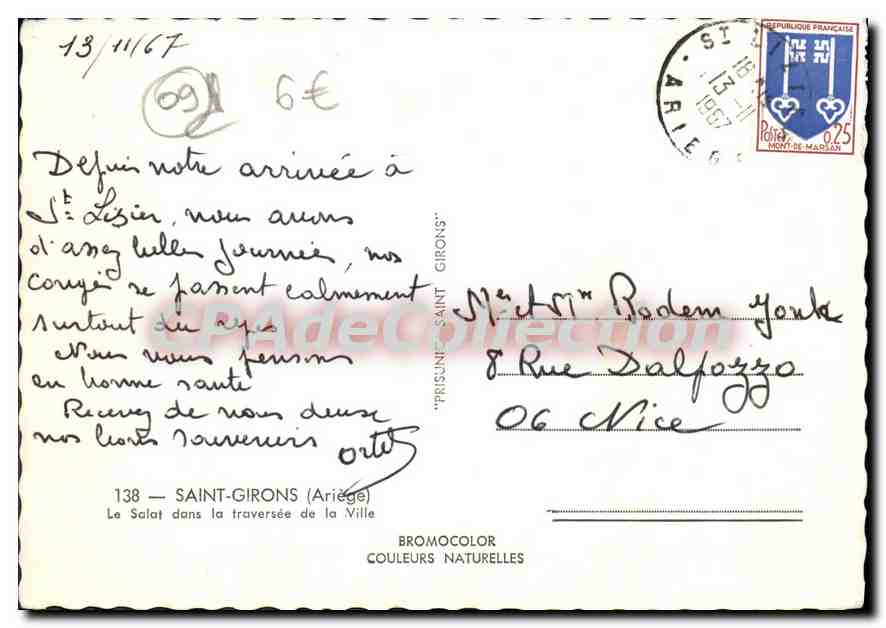 13/11/67
09
6€
Depuis notre arrivée à
St Lizier, nous avons
d'assez belles journées, nos
congés se passent calmement
surtout du repos
Nous vous pensons
en bonne santé
Recevez de nous deux
nos bons souvenirs
Ortet
138 — SAINT-GIRONS (Ariège)
Le Salat dans la traversée de la Ville
BROMOCOLOR
COULEURS NATURELLES
"PRISUNIC SAINT GIRONS"
ST LIZIER
18
13-11
1967
ARIEGE
REPUBLIQUE FRANÇAISE
Postes 0,25
MONT-DE-MARSAN
Mr et Mme Rodem
8 Rue Dalpozzo
06 Nice
CPAdeCollection.com